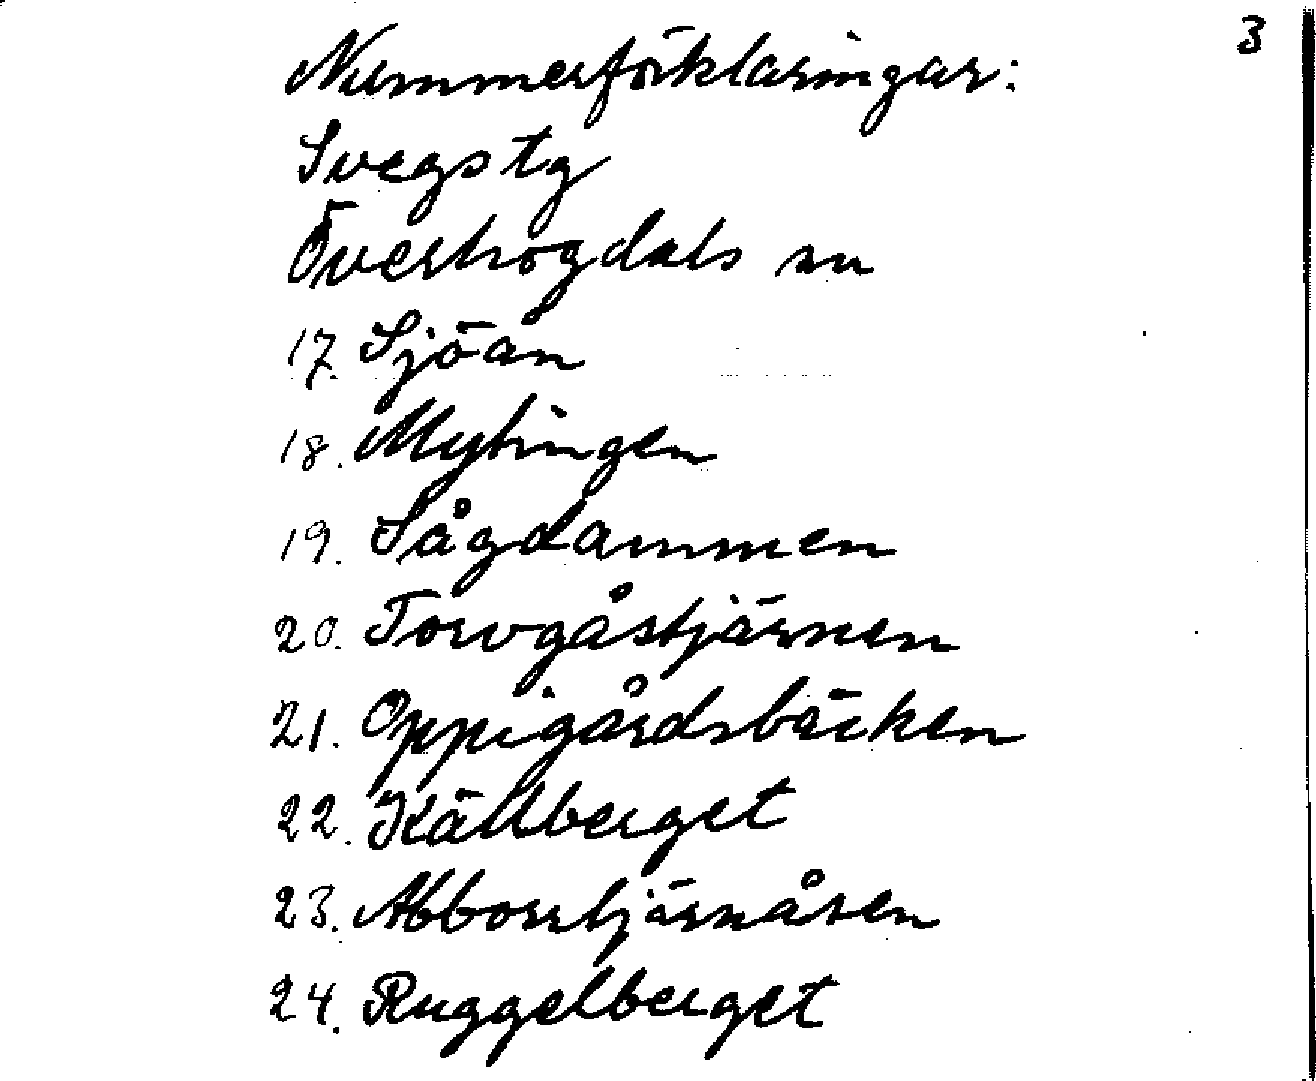 3
Nummerförklaringar:
Svegs tg
Överhogdals sn
17. Sjöån
18. Mytingen
19. Sågdammen
20. Torvgåstjärnen
21. Oppigårdsbäcken
22. Källberget
23. Abborrtjärnåsen
24. Ruggelberget